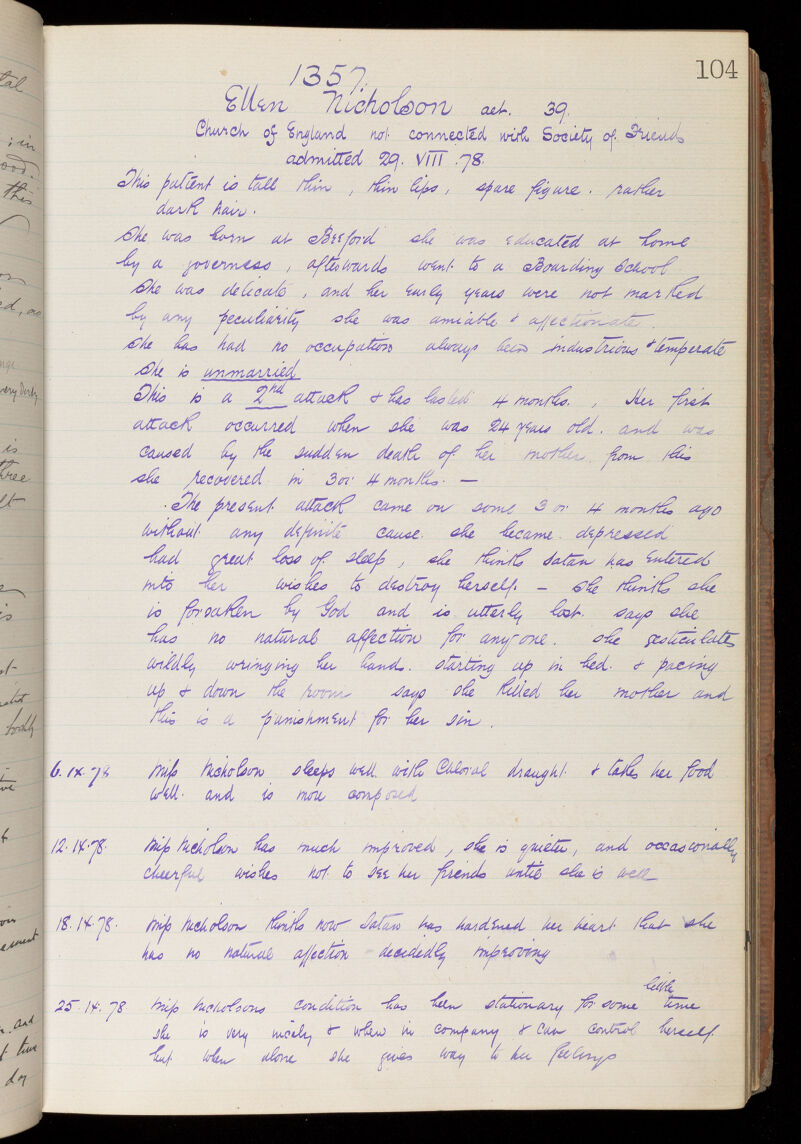 104
1357.
Ellen Nicholson aet. 39.
Church of England not connected with Society of Friends
admitted 29. VIII. 78.
This patient is tall thin, thin lips, spare figure. rather
dark hair.
She was born at Beeford she was educated at home
by a governess, afterwards went to a Boarding School
She was delicate, and her early years were not marked
by any peculiarity she was amiable & affectionate.
She has had no occupation always been industrious & temperate
She is unmarried
This is a 2nd attack & has lasted 4 months., Her first
attack occurred when she was 24 years old. and was
caused by the sudden death of her mother from this
she recovered in 3 or 4 months. —
The present attack came on some 3 or 4 months ago
without any definite cause. she became depressed
had great loss of sleep, she thinks Satan has entered
into her wishes to destroy herself. — She thinks she
is forsaken by God and is utterly lost. says she
has no natural affection for any one. she gesticulates
wildly wringing her hands. starting up in bed. & pacing
up & down the room says she killed her mother and
this is a punishment for her sin.
6. IX. 78 Miss Nicholson sleeps well with Chloral draught. & takes her food
well. and is more composed
12. IX. 78. Miss Nicholson has much improved, she is quieter, and occasionally
cheerful wishes not to see her friends until she is well
18. IX. 78. Miss Nicholson thinks now Satan has hardened her heart that she
has no natural affection – decidedly improving
25. IX. 78 Miss Nicholsons condition has been stationary for some little time
she is very nicely & when in company & can control herself
but when alone she gives way to her feelings